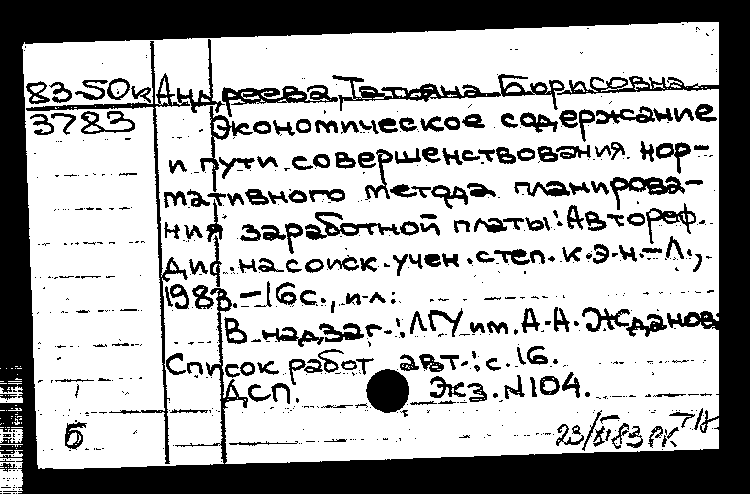 83-50к Андреева, Татьяна Борисовна
3783 Экономическое содержание
и пути совершенствования нор-
мативного метода планирова-
ния заработной платы: Автореф.
Дис. на соиск. учен. степ. к.э.н. - Л.,
1983. - 16 с., ил:
В надзаг.: ЛГУ им. А.А. Жданова
Список работ авт.: с. 16.
ДСП. Экз. N104.
Б